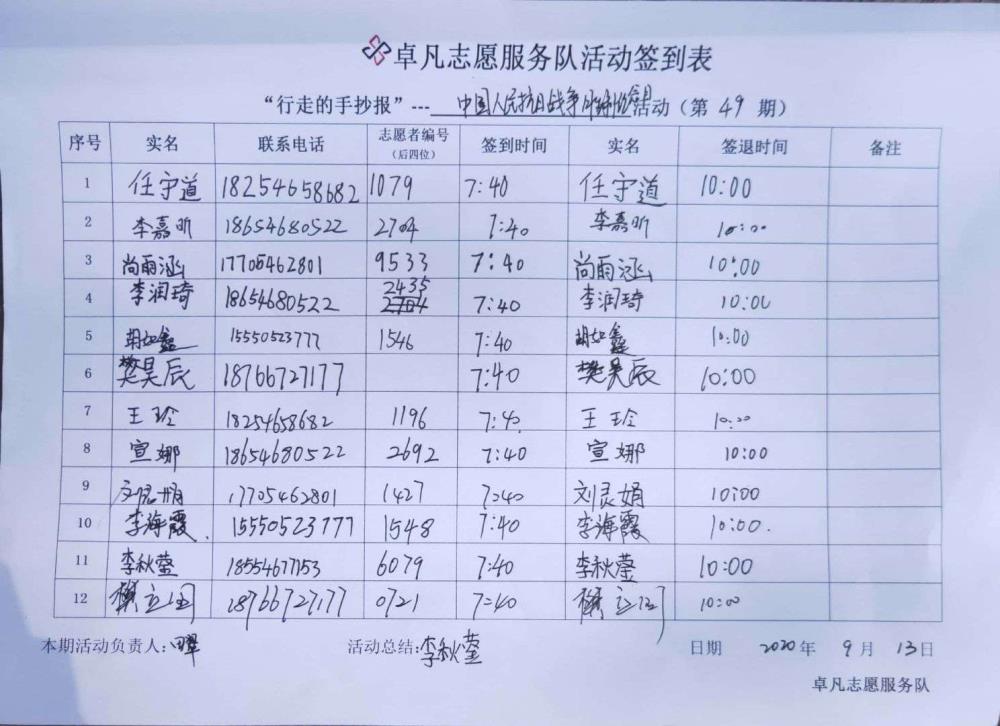 卓凡志愿服务队活动签到表
“行走的手抄报”--- 中国人民抗日战争胜利 活动（第 49 期）
序号 实名 联系电话 志愿者编号（后四位） 签到时间 实名 签退时间 备注
1 任守道 18254658682 1079 7:40 任守道 10:00
2 李嘉昕 18654680522 2704 7:40 李嘉昕 10:00
3 尚雨涵 17705462801 9533 7:40 尚雨涵 10:00
4 李润琦 18654680522 2435 7:40 李润琦 10:00
5 胡如鑫 15550523777 1546 7:40 胡如鑫 10:00
6 樊昊辰 18766727177 7:40 樊昊辰 10:00
7 王玲 18254658682 1196 7:40 王玲 10:00
8 宣娜 18654680522 2692 7:40 宣娜 10:00
9 刘灵娟 17705462801 1427 7:40 刘灵娟 10:00
10 李海霞. 15550523777 1548 7:40 李海霞 10:00.
11 李秋莹 18554677153 6079 7:40 李秋莹 10:00
12 18766727177 0721 7:40 10:00
本期活动负责人: 活动总结:李秋莹 日期 2020 年 9 月 13 日
卓凡志愿服务队